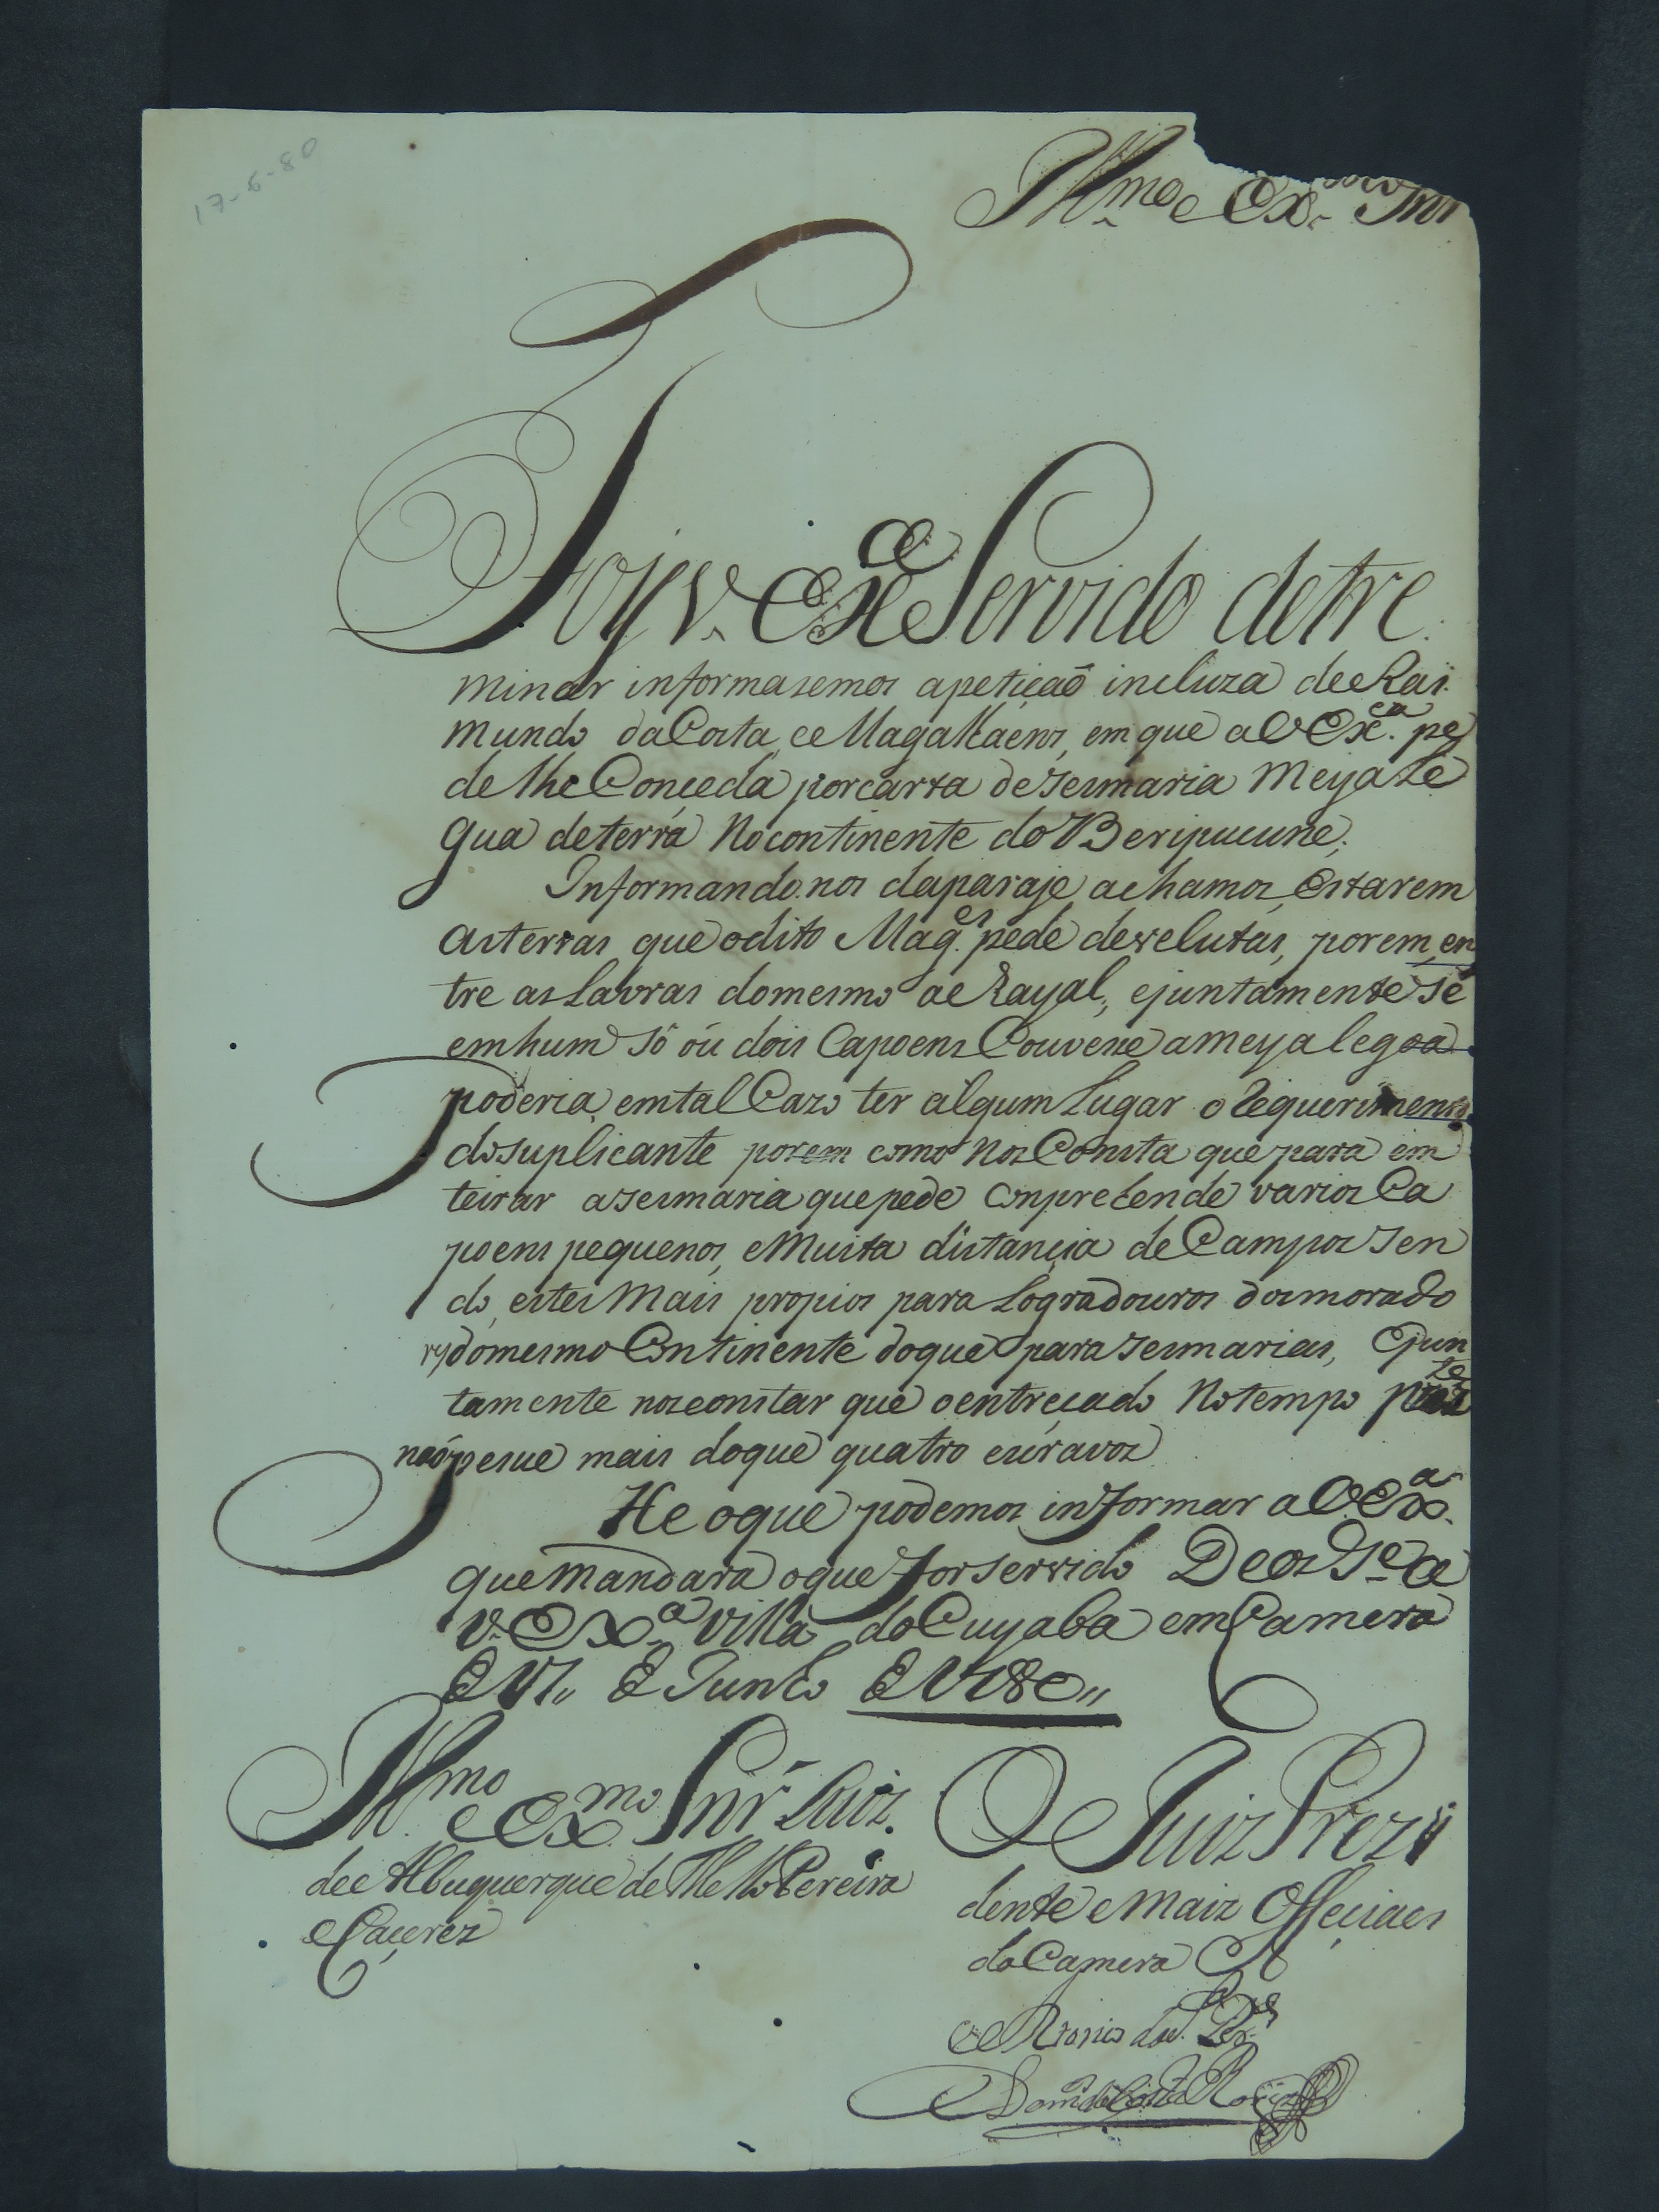 17-6-80
Illmo e Exmo Snr
Foy V. Exce Servido detre
minar informasemos apetiçaõ incluza de Rai
mundo da Costa e Magalhaens, em que a V Exca. pe
de lhe Conçeda por carta de sesmaria Meya Le
gua de terra No continente do Beripucune;
Informando nos daparaje achamos Estarem
as terras que o dito Mages. pede develutas, porem en
tre as Lavras domesmo aRayal, ejuntamente se
em hum só oú dois Capoens Couvese ameya legoa
poderia emtal Cazo ter algum Lugar o Requerimento
do suplicante porem como nos Consta que para em
teirar asesmaria que pede Comprecende varios Ca
poens pequenos, e Muita distançia de Campos sen
do, estes Mais propios para Logradouros dos morado
rs domesmo Continente doque para sesmarias, Ejun
tamente nos constar que o entreçado No tempo prezte
naõ pesue mais doque quatro esiravos
He oque podemos informar a V Exa.
que Mandara oque for servido Deos Ge a
V. Exa. Villa do Cuyaba em Camera
E 17,, E Junho E 1780,,
Illmo. e Exmo. Snr Luiz.
de Albuquerque de Mello Pereira
e Caçeres
O Juiz Prezi
dente e Maiz Offeçiaes
da Camera
Antonio da
Domos da Costa